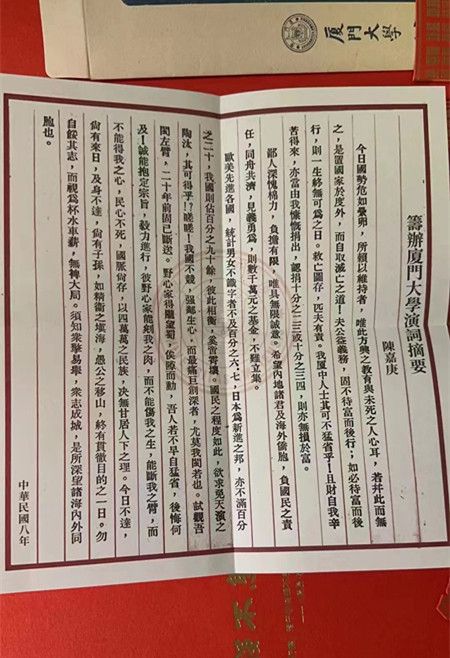 廈門大學
籌辦厦門大學演詞摘要
陳嘉庚
今日國勢危如纍卵，所賴以維持者，唯此方興之教育與未死之人心耳，若并此而無
之，是置國家於度外，而自取滅亡之道！夫公益義務，固不待富而後行，如必待富而後
行，則一生終無可為之日。救亡圖存，匹夫有責。我厦中人士其可不猛省乎！且財自我辛
苦得來，亦當由我慷慨捐出，認捐十分之二三或十分之三四，則亦無損於富。
鄙人深愧棉力，負擔有限，唯具無限誠意。希望內地諸君及海外僑胞，負國民之責
任，同舟共濟，見義勇爲，則數千萬元之基金，不難立集。
歐美先進各國，統計男女不識字者不及百分之六，七，日本爲新進之邦，亦不滿百分
之二十，我國則佔百分之九十餘，彼此相衡，奚啻霄壤。國民之程度如此，欲求免天演之
陶汰，其可得乎!?嗟嗟！我國不競，强鄰生心，而最痛巨創深者，尤莫我閩若也。試觀吾
閩左臂，二十年前固已斷送。野心家得隴望蜀，俟隙而動，吾人若不早自猛省，後悔何
及！誠能抱定宗旨，毅力進行，彼野心家能剜我之肉，而不能傷我之生，能斷我之臂，而
不能得我之心，民心不死，國脈尚存，以四萬萬之民族，決無甘居人下之理。今日不達，
尚有來日，及身不達，尚有子孫，如精衛之塡海，愚公之移山，終有貫徹目的之一日。勿
自餒其志，而視爲杯水車薪，無裨大局。須知衆擎易舉，衆志成城，是所深望諸海內外同
胞也。
中華民國八年
不